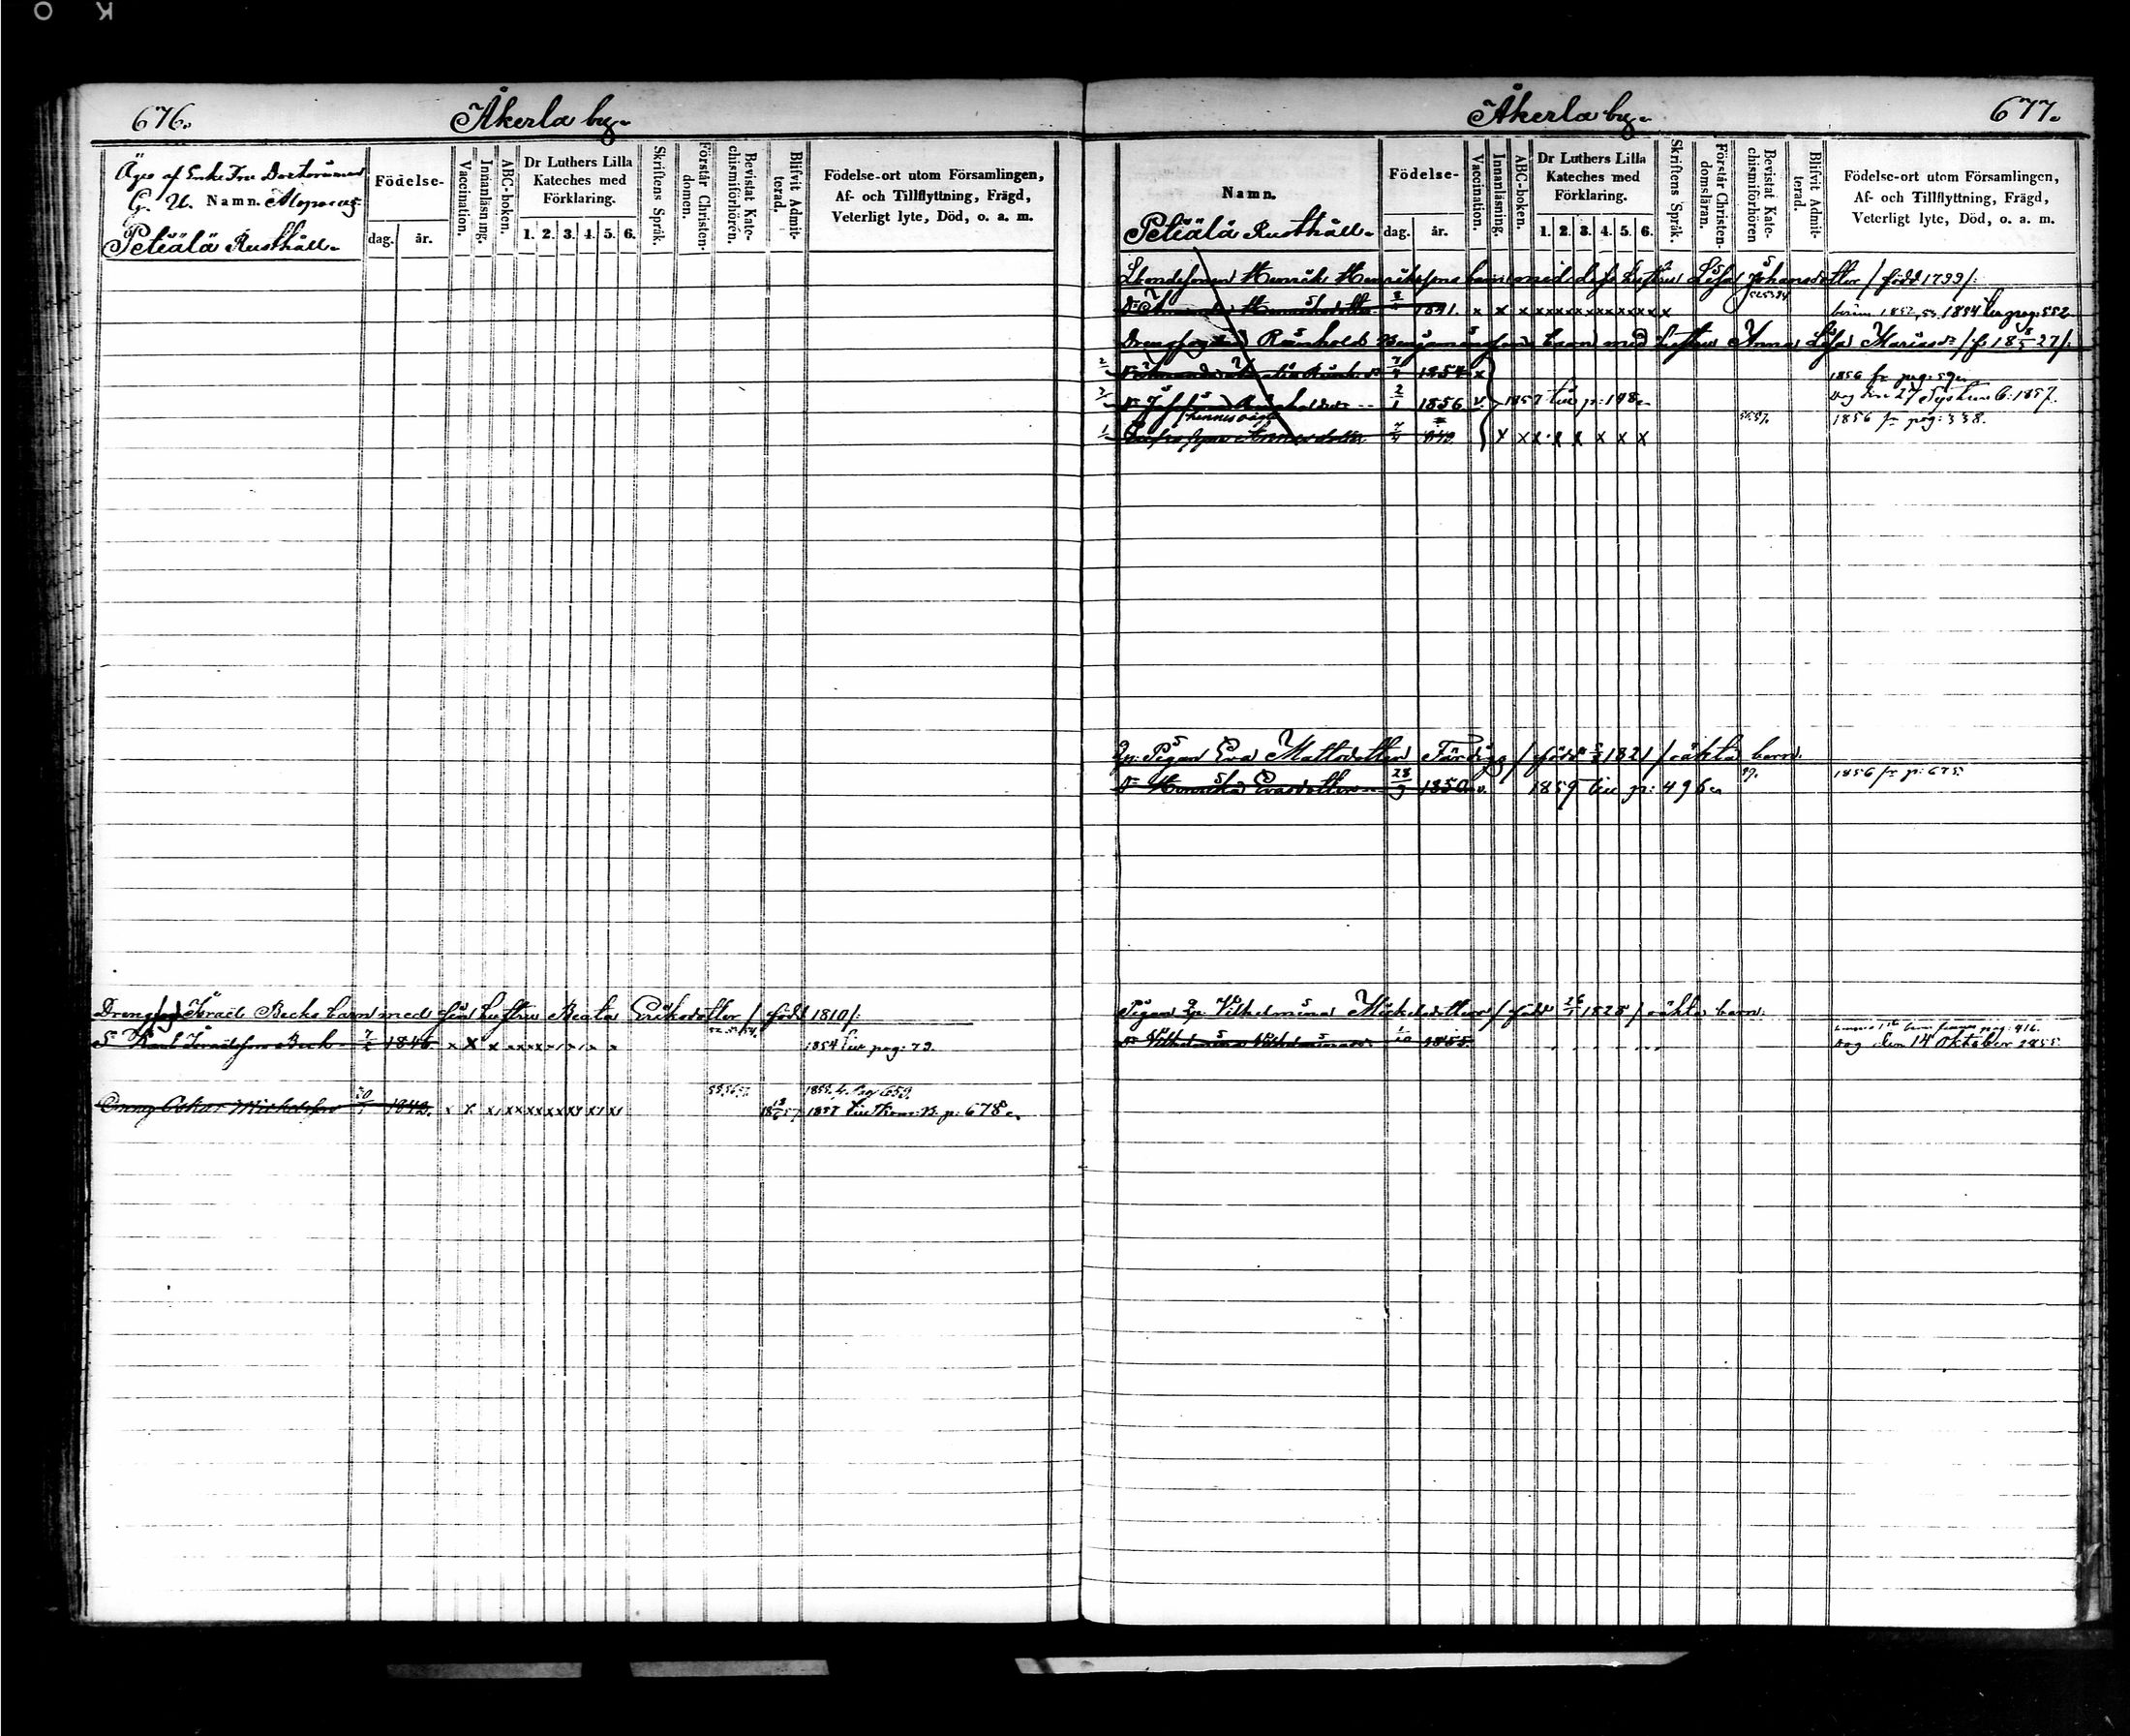 K O
676.
Åkerla by.
Äges af Enke Fru Doctorinnan
G. U. Namn. Aloporæus
Petiälä Rusthåll.
Födelse-
dag. år.
Vaccination.
Innanläsning.
ABC-boken.
Dr Luthers Lilla
Kateches med
Förklaring.
1. 2. 3. 4. 5. 6.
Skriftens Språk.
Förstår Christen-
domen.
Bevistat Kate-
chismiförhören.
Blifvit Admit-
terad.
Födelse-ort utom Församlingen,
Af- och Tillflyttning, Frägd,
Veterligt lyte, Död, o. a. m.
Drengfog Israel Becks barn med sin hustru Beata Eriksdotter / född 1810/:
S Karl Israelsson Beck 7/2 1846 x x x x x x x x x x x 1854 till pag: 79.
1855 fr. pag 659.
Dreng Oskar Michelsson 20/1 1842. x x x x x x x x x x x 1857 till Kom: B. p: 678.
Åkerla by.
677.
Namn.
Petiälä Rusthåll.
Födelse-
dag. år.
Vaccination.
Innanläsning.
ABC-boken.
Dr Luthers Lilla
Kateches med
Förklaring.
1. 2. 3. 4. 5. 6.
Skriftens Språk.
Förstår Christen-
domsläran.
Bevistat Kate-
chismiförhören
Blifvit Admit-
terad.
Födelse-ort utom Församlingen,
Af- och Tillflyttning, Frägd,
Veterligt lyte, Död, o. a. m.
Henrik Henrikssons barn med dess hustru Lisa Johansdotter / född 1799/:
Henriksdotter 1841. x x x x x x x x x x x x x 1854 till pag: 552
Drengfogden Reinhold Benjaminssons barn med hustru Anna Lisa Mariasdr /f. 18 5/5 27/:
7/4 1854 x 1856 fr pag: 59
2/1 1856 v. 1857 till p: 198. dog den 27 1857.
hennes oäkta
Annasdotter 7/4 x x x x x x x x 1856 fr pag: 338.
Qp: Pigan Eva Mattsdotter Färdig / född 1821 / oäkta barn:
Dr Henrika Evasdotter 28/9 1850 v. 1859 till p: 496. 1856 fr p: 675.
Pigan Qp Vilhelmina Mickelsdotters / född 26/1 1825 / oäkta barn:
pag: 416.
Dr Vilhelmina Vilhelminasdr 1/10 1855. dog den 14 Oktober 1855.